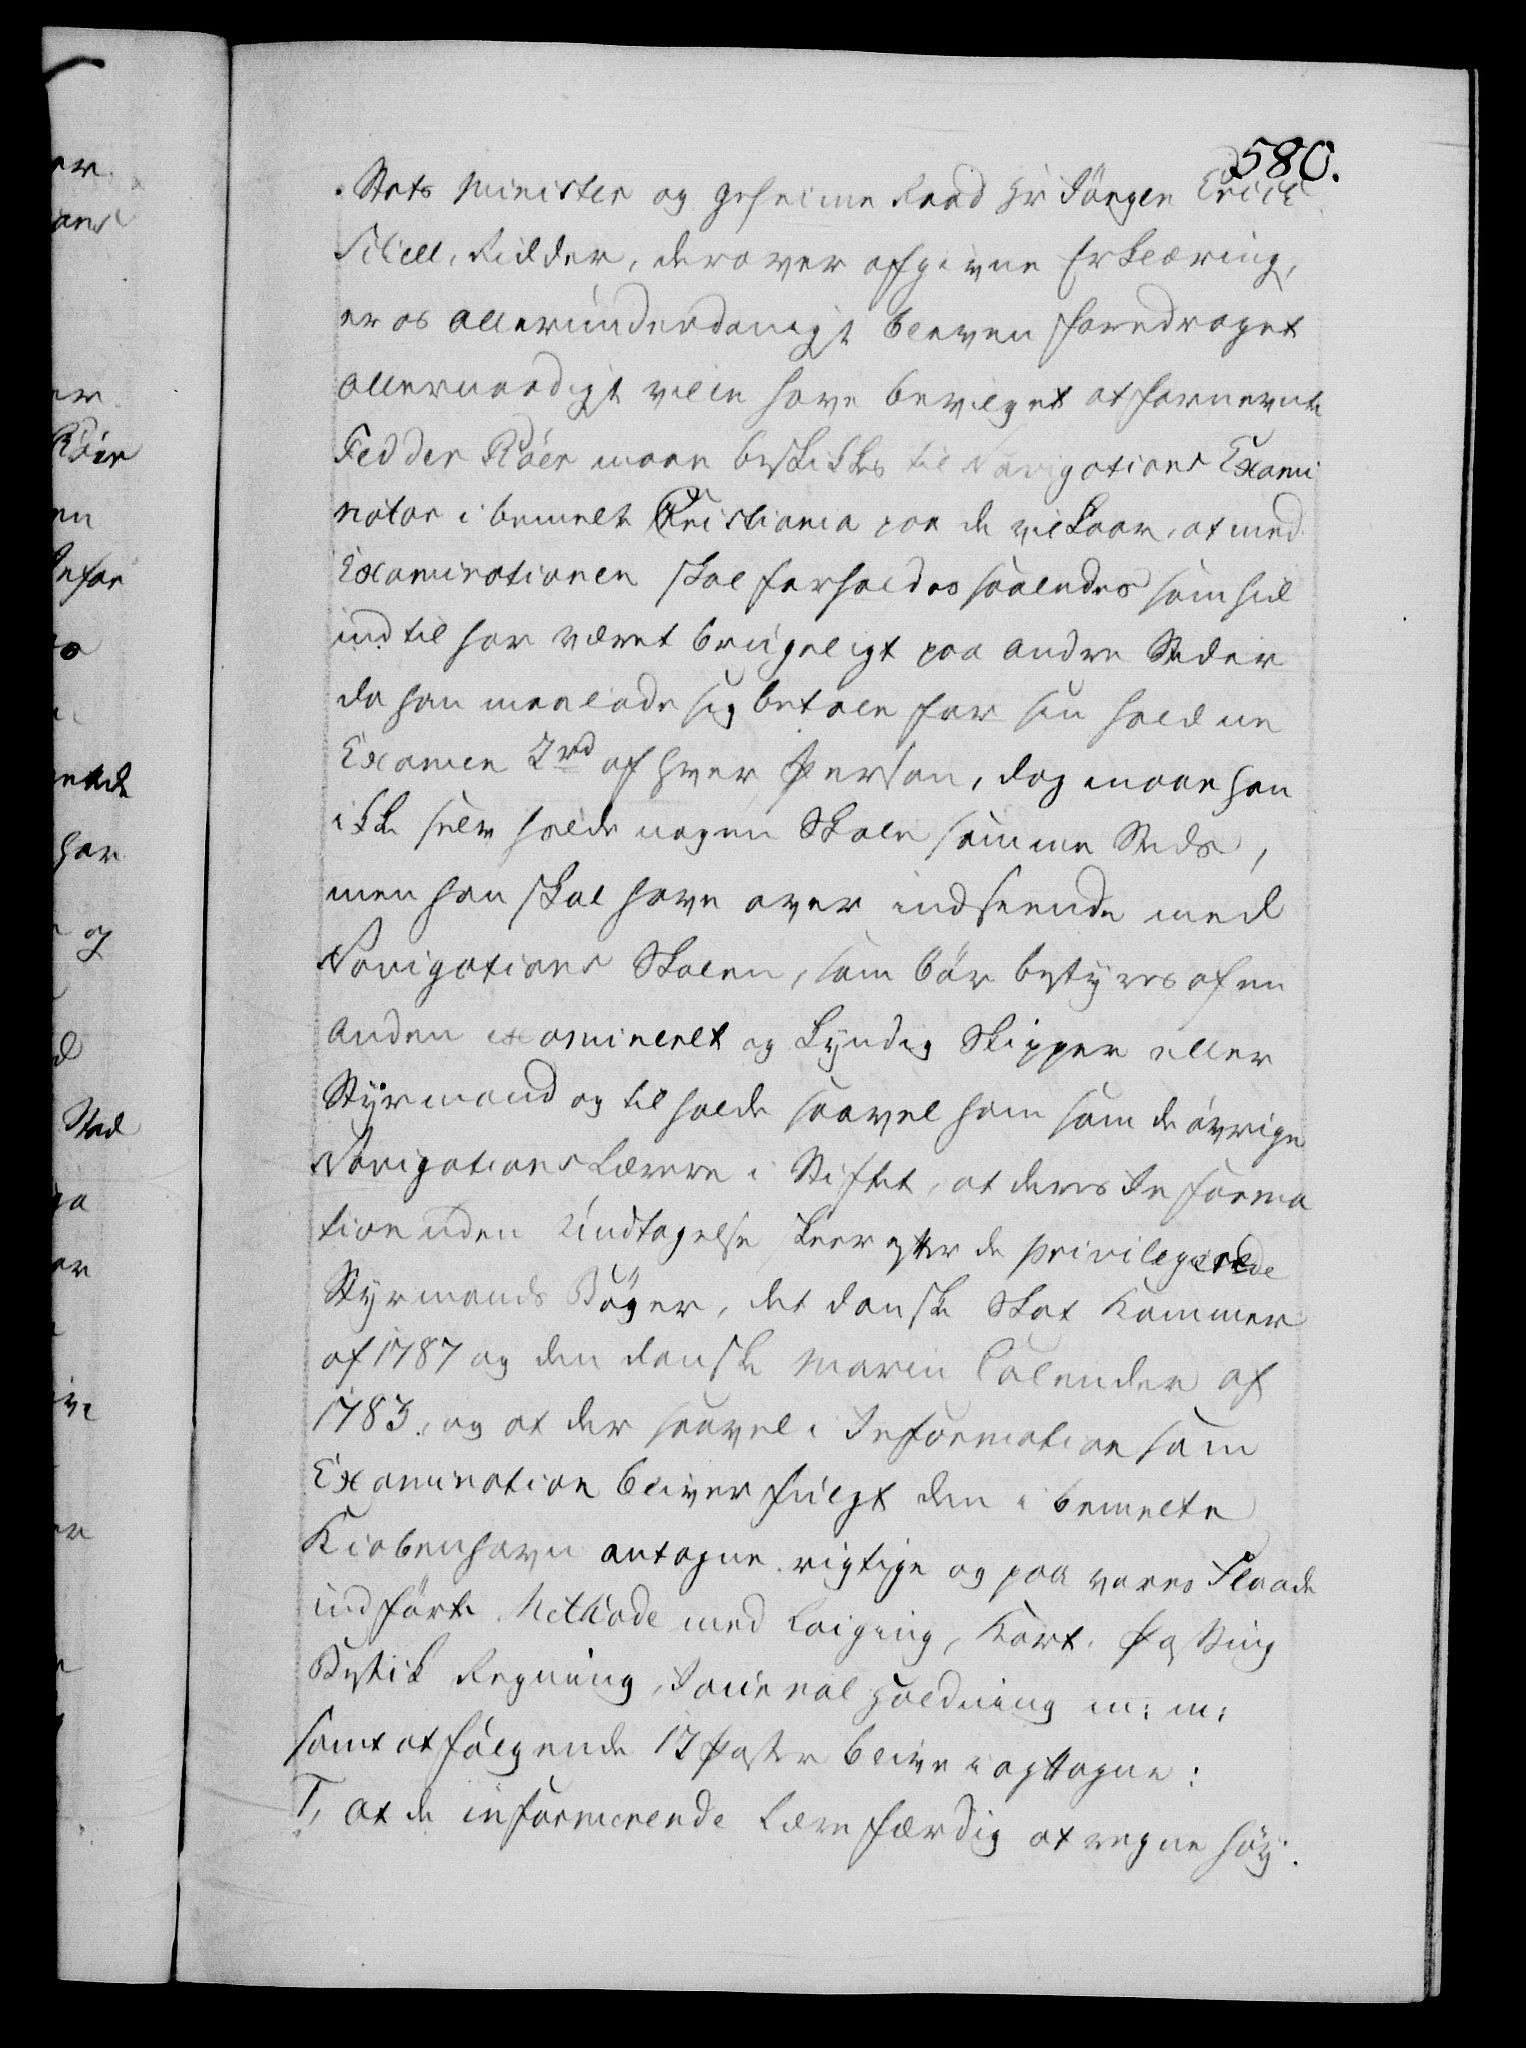 580.
Stats Minister og Geheime Raad Hr Jörgen Erich
Skiell, Ridder, derover afgivne Erklæring,
er os allerunderdanigst bleven foredraget
allernaadigst ville have bevilget at fornevnte
Fedder Röer maae beskikkes til Navigations Exami
nator i bemelte Christiania paa de vilkaar, at med
Examinationen skal forholdes saaledes som hid
indtil har været brugeligt paa andre Steder
da han maa lade sig betale for sin holdne
Examen 2rd af hver Person, dog maae han
ikke selv holde nogen Skole samme Steds,
men han skal have over indseende med
Navigations Skolen, som bör bestyres af en
anden examineret og kyndig Skipper eller
Styrmand og til holde saavel ham som de övrige
Navigations Lærere i Stiftet, at deres Informa
tion uden Undtagelse skeer efter de privilegerede
Styrmands Böger, det danske Skat Kammer
af 1787 og den danske Marin Calender af
1783., og at der saavel i Information som
Examination bliver fulgt den i bemelte
Kiøbenhavn antagne rigtige og paa vores Flaade
indförte Methode med Laiging, Kort. Pasning
Bestik Regning, Journal Holdning m: m:
samt at følgende 17 Poster blive iagttagne:
1, at de informerende Lære færdig at regne höy.